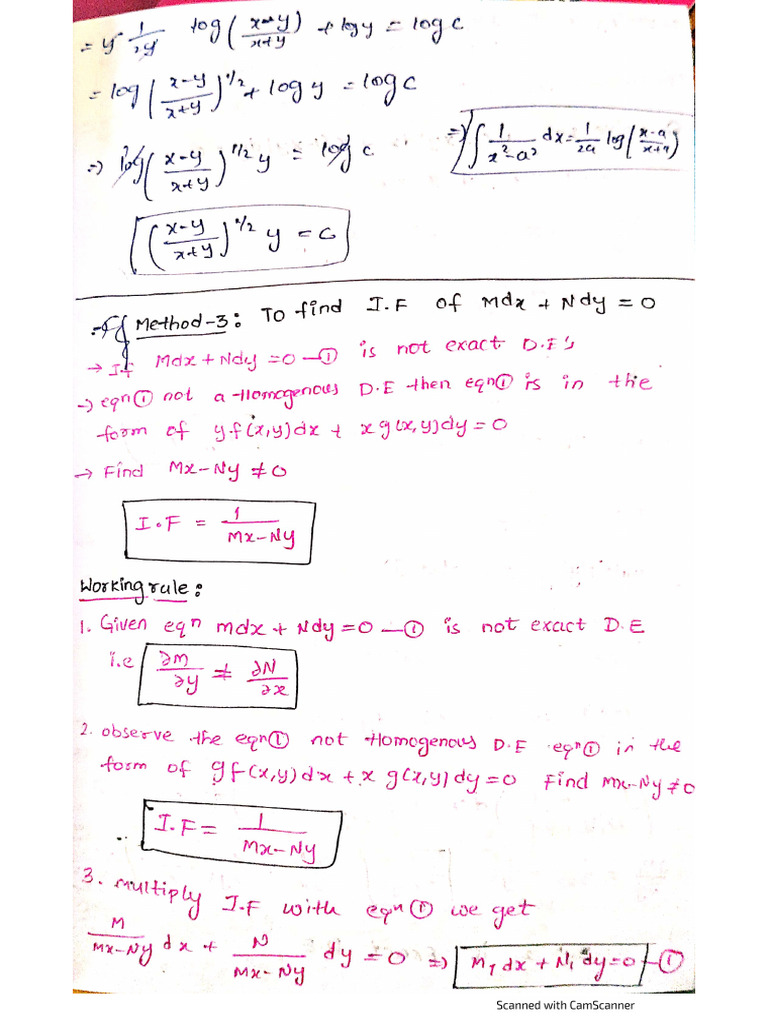 = y 1/2y log(x-y/x+y) + log y = log c
= log(x-y/x+y)^1/2 + log y = log c
=> log(x-y/x+y)^1/2 y = log c
=> ∫ 1/x²-a² dx = 1/2a log(x-a/x+a)
(x-y/x+y)^1/2 y = c
Method-3: To find I.F of Mdx + Ndy = 0
→ If Mdx + Ndy = 0 —① is not exact D.E's
→ eqn① not a Homogenous D.E then eqn① is in the
form of y f(x,y)dx + x g(x,y)dy = 0
→ Find Mx-Ny ≠ 0
I.F = 1/Mx-Ny
Working rule:
1. Given eqn mdx + Ndy = 0 —① is not exact D.E
i.e ∂M/∂y ≠ ∂N/∂x
2. observe the eqn① not Homogenous D.E eqn① in the
form of y f(x,y)dx + x g(x,y)dy = 0 Find Mx-Ny ≠ 0
I.F = 1/Mx-Ny
3. Multiply I.F with eqn① we get
M/Mx-Ny dx + N/Mx-Ny dy = 0 => M₁dx + N₁dy = 0 —①
Scanned with CamScanner